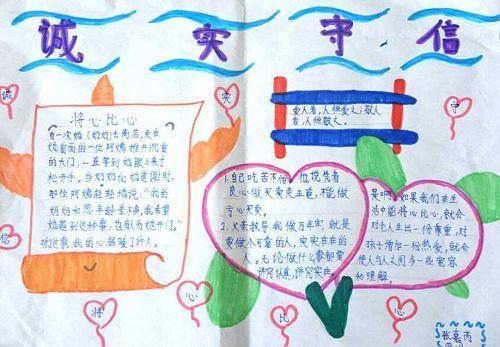 诚 实 守 信
诚
实
守
信
将心比心
有一次奶奶去商店,走在
她前面的一位阿姨推开沉重
的大门,一直等到她跟上来才
松开手。当奶奶向她道谢时,
那位阿姨轻轻地说:"我的
妈妈和您年龄差不多,我希望
她遇到这种事,也有人为她开门。"
听这事,我的心温暖了许久。
爱人者,人恒爱之;敬人
者,人恒敬之。
1.自己吃苦不怕,他说凭着
良心做天卖走正道,不能做
亏心天卖。
2.父亲教导我做万年牢,就是
要做个可靠的人,实实在在的
人。无论做什么事都要
讲究认真,讲究实在。
是啊,如果我们在生
活中能将心比心,就会
对老人生出一份尊重,对
孩子增加一份热爱,就会
使人与人之间多一些宽容
和理解。
将
心
比
心